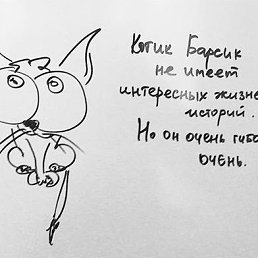 Котик Барсик
не имеет
интересных жизне
историй.
Но он очень гибо
очень.